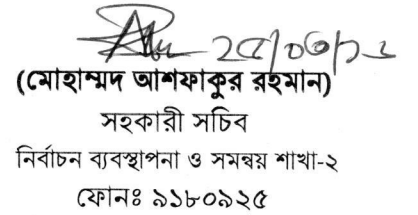 (মোহাম্মদ আশফাকুর রহমান)
সহকারী সচিব
নির্বাচন ব্যবস্থাপনা ও সমন্বয় শাখা-২
ফোনঃ ৯১৮০৯২৫